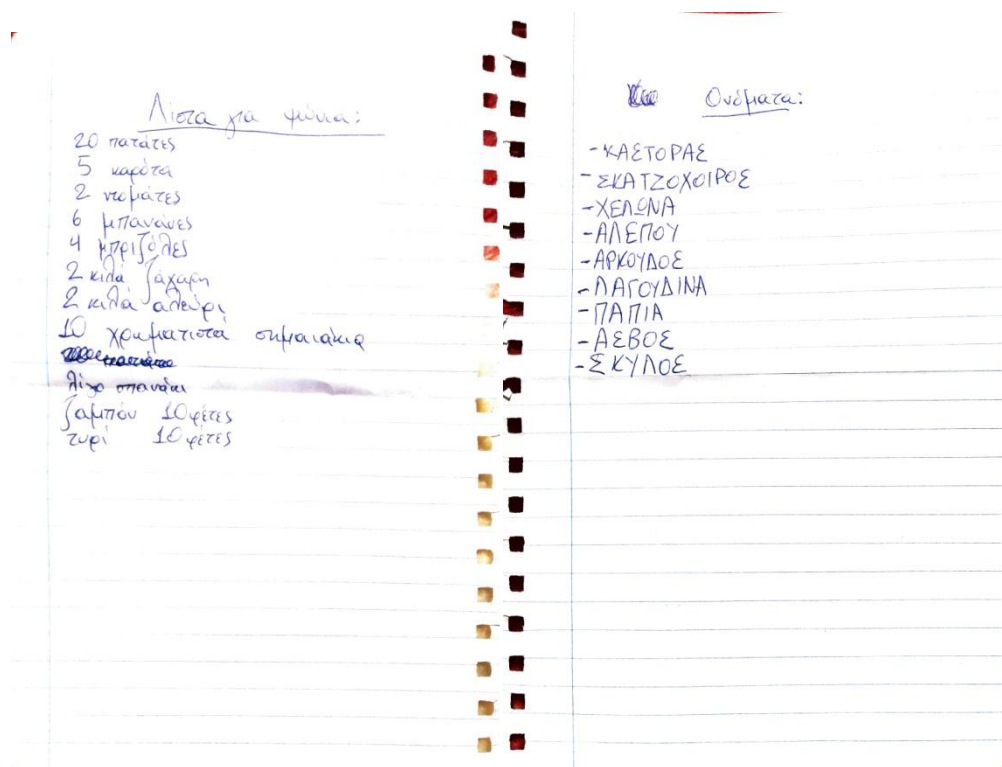 Λίστα για ψώνια:
20 πατάτες
5 καρότα
2 ντομάτες
6 μπανάνες
4 μπριζόλες
2 κιλά ζάχαρη
2 κιλά αλεύρι
10 χρωματιστά σημαιάκια
λίγο σπανάκι
ζαμπόν 10 φέτες
τυρί 10 φέτες
Ονόματα:
-ΚΑΣΤΟΡΑΣ
-ΣΚΑΤΖΟΧΟΙΡΟΣ
-ΧΕΛΩΝΑ
-ΑΛΕΠΟΥ
-ΑΡΚΟΥΔΟΣ
-ΛΑΓΟΥΔΙΝΑ
-ΠΑΠΙΑ
-ΑΣΒΟΣ
-ΣΚΥΛΟΣ